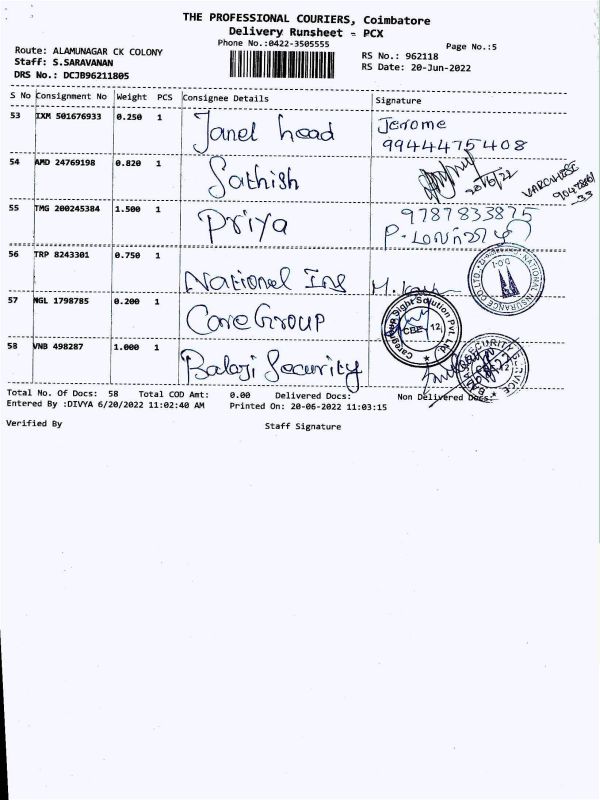 THE PROFESSIONAL COURIERS, Coimbatore
Delivery Runsheet - PCX
Phone No.:0422-3505555
Page No.:5
Route: ALAMUNAGAR CK COLONY
Staff: S.SARAVANAN
DRS No.: DCJB96211805
RS No.: 962118
RS Date: 20-Jun-2022
S No Consignment No Weight PCS Consignee Details Signature
53 IXM 501676933 0.250 1 Janel head Jerome
99444475408
54 AMD 24769198 0.820 1 Sathish 20/6/22
55 TMG 200245384 1.500 1 Priya 9787833875
56 TRP 8243301 0.750 1 National Ins
57 NGL 1798785 0.200 1 CareGroup
58 VNB 498287 1.000 1 Balaji Security
Total No. Of Docs: 58 Total COD Amt: 0.00 Delivered Docs: Non Delivered Docs:
Entered By :DIVYA 6/20/2022 11:02:40 AM Printed On: 20-06-2022 11:03:15
Verified By Staff Signature